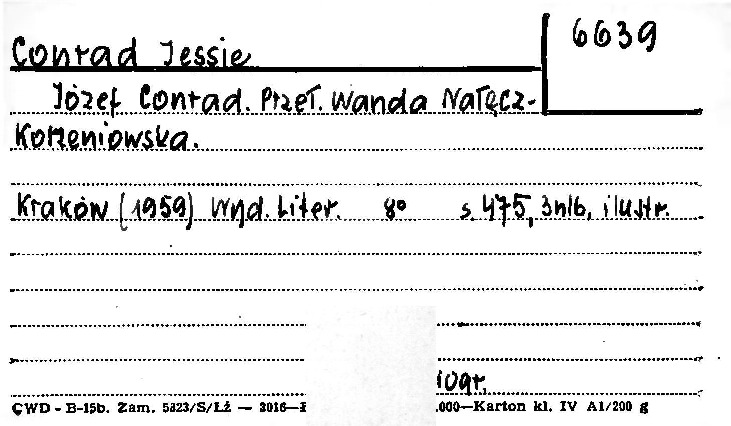 Conrad Jessie
6639
Józef Conrad. Przeł. Wanda Nałęcz-
Korzeniowska.
Kraków (1959) Wyd. Liter. 8° s. 475, 3nlb, ilustr.
iogr.
CWD - B-15b. Zam. 5323/S/Łż — 3016— .000—Karton kl. IV A1/200 g